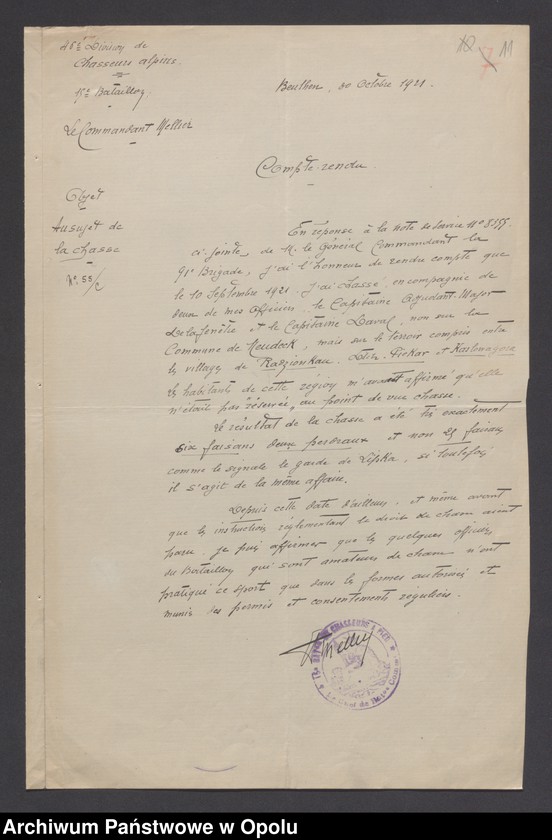 46e Division de
Chasseurs alpins
15e Bataillon
Le Commandant Mellier
11
Beuthen, 30 Octobre 1921.
Compte-rendu
Objet
Au sujet de
la chasse
N° 55/c
En réponse à la note de service N° 8355
ci-jointe, de M. le Général Commandant la
91e Brigade, j'ai l'honneur de rendre compte que
le 10 Septembre 1921. j'ai chassé, en compagnie de
deux de mes officiers: le Capitaine Adjudant-Major
Delafenêtre et le Capitaine Laval, non sur la
Commune de Neudeck, mais sur le terroir compris entre
les villages de Radzionkau, Dtch-Piekar et
les habitants de cette région m'ayant affirmé qu'elle
n'était pas "réservée" au point de vue chasse.
Le résultat de la chasse a été très exactement
six faisans deux perdreaux et non 25 faisans
comme le signale le garde de si toutefois
il s'agit de la même affaire.
Depuis cette date d'ailleurs, et même avant
que les instructions réglementant le droit de chasse aient
paru. je puis affirmer que les quelques officiers
du Bataillon qui sont amateurs de chasse n'ont
pratiqué ce sport que dans les formes autorisées et
munis des permis et consentements réguliers.
Mellier
CHASSEURS A PIED
Le Chef de